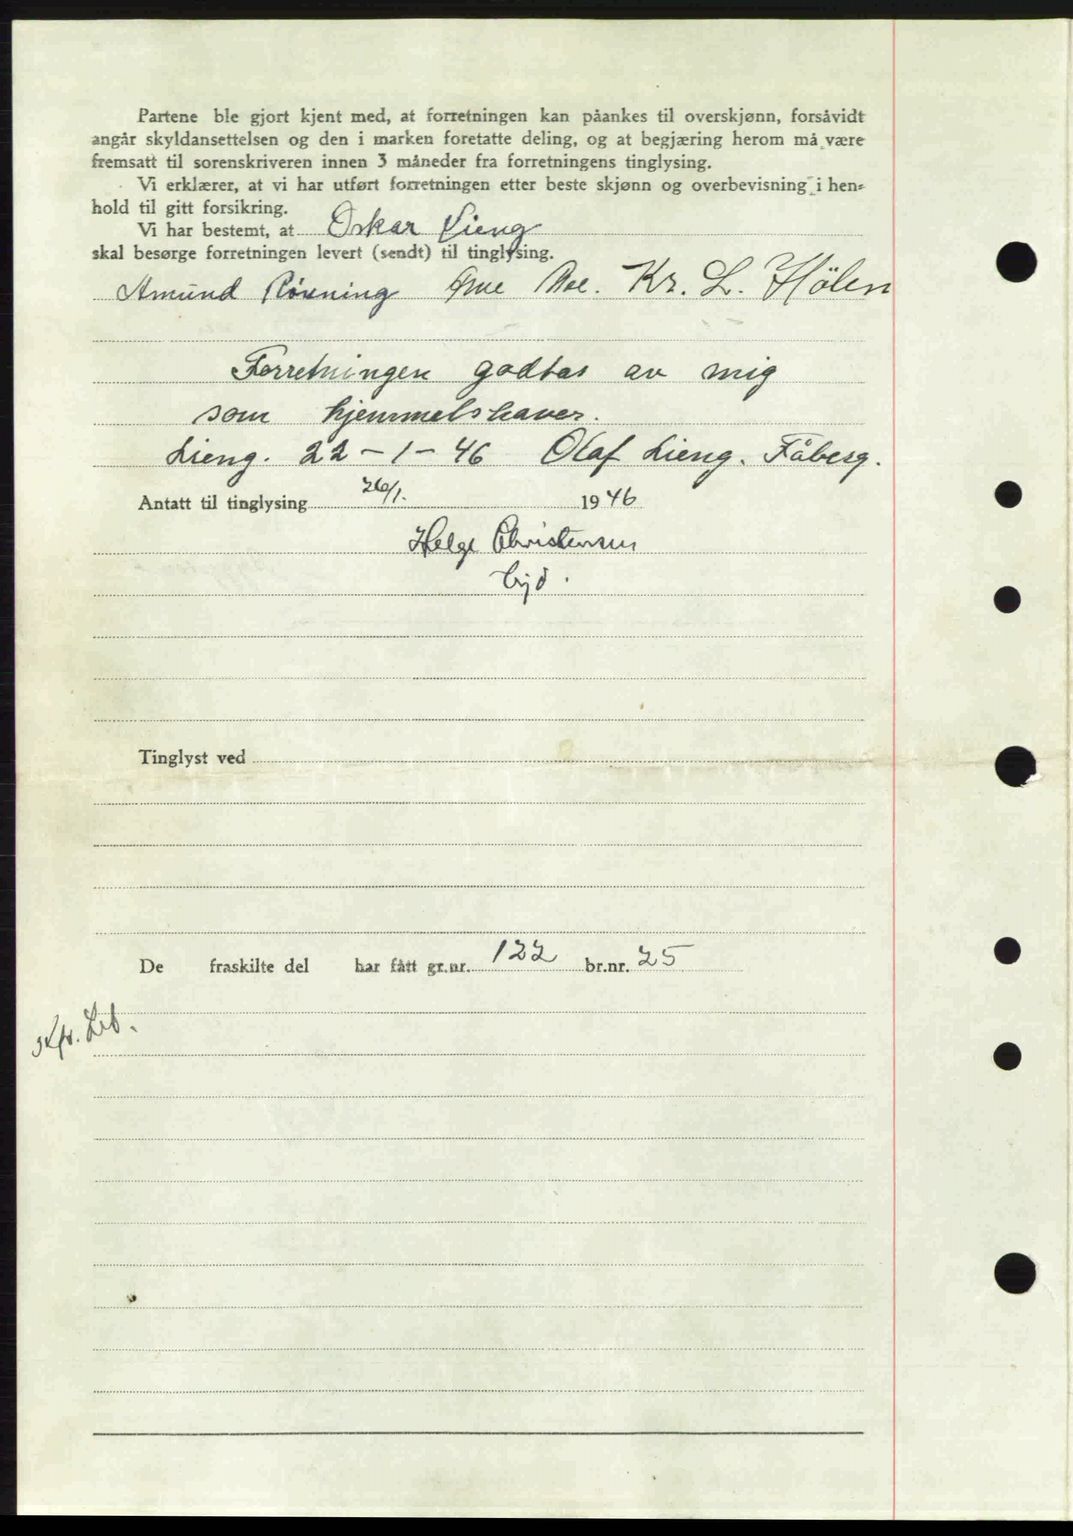 Partene ble gjort kjent med, at forretningen kan påankes til overskjønn, forsåvidt
angår skyldansettelsen og den i marken foretatte deling, og at begjæring herom må være
fremsatt til sorenskriveren innen 3 måneder fra forretningens tinglysing.
Vi erklærer, at vi har utført forretningen etter beste skjønn og overbevisning i hen-
hold til gitt forsikring.
Vi har bestemt, at Oskar Lieng
skal besørge forretningen levert (sendt) til tinglysing.
Amund Rövning Kr. L. Hölen
Forretningen godtas av mig
som hjemmelshaver.
Lieng. 22-1-46 Olaf Lieng. Fåberg.
Antatt til tinglysing 26/1. 1946
Helge Christensen
De fraskilte del har fått gr.nr. 122 br.nr. 25
Tinglyst ved